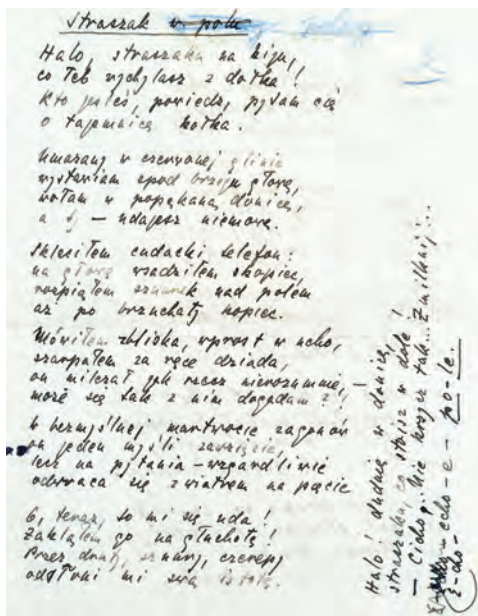 Straszak w polu
Halo, straszaku na kiju,
co łeb wychylasz z dołka!
Kto jesteś, powiedz, pytam cię
o tajemnicę kołka.
Umazany w czerwonej glinie
wystawiam spod brzegu głowę,
wołam w popękaną donicę,
a ty — udajesz niemowę.
Skleciłem cudacki telefon:
na głowę wsadziłem skopiec,
rozpiąłem sznurek nad polem
aż po brzuchaty kopiec.
Mówiłem zbliska, wprost w ucho,
szarpałem za ręce dziada,
on milczał jak rzecz nierozumnie, –
może się tak z nim dogadam?!
W bezmyślnej martwocie zagonów
on jeden myśli zawzięcie,
lecz na pytania – wzgardliwie
odwraca się z wiatrem na pięcie
O, teraz, to mi się uda!
Zakląłem go na głuchotę!
Przez druty, sznury, czerepy
odsłoni mi swą istotę.
Halo! dudnię w donicę,
straszaku, co stoisz w dole!
— Cicho.. Nie krzycz tak... Zmilknij...
E-cho-echo-e – po-le.